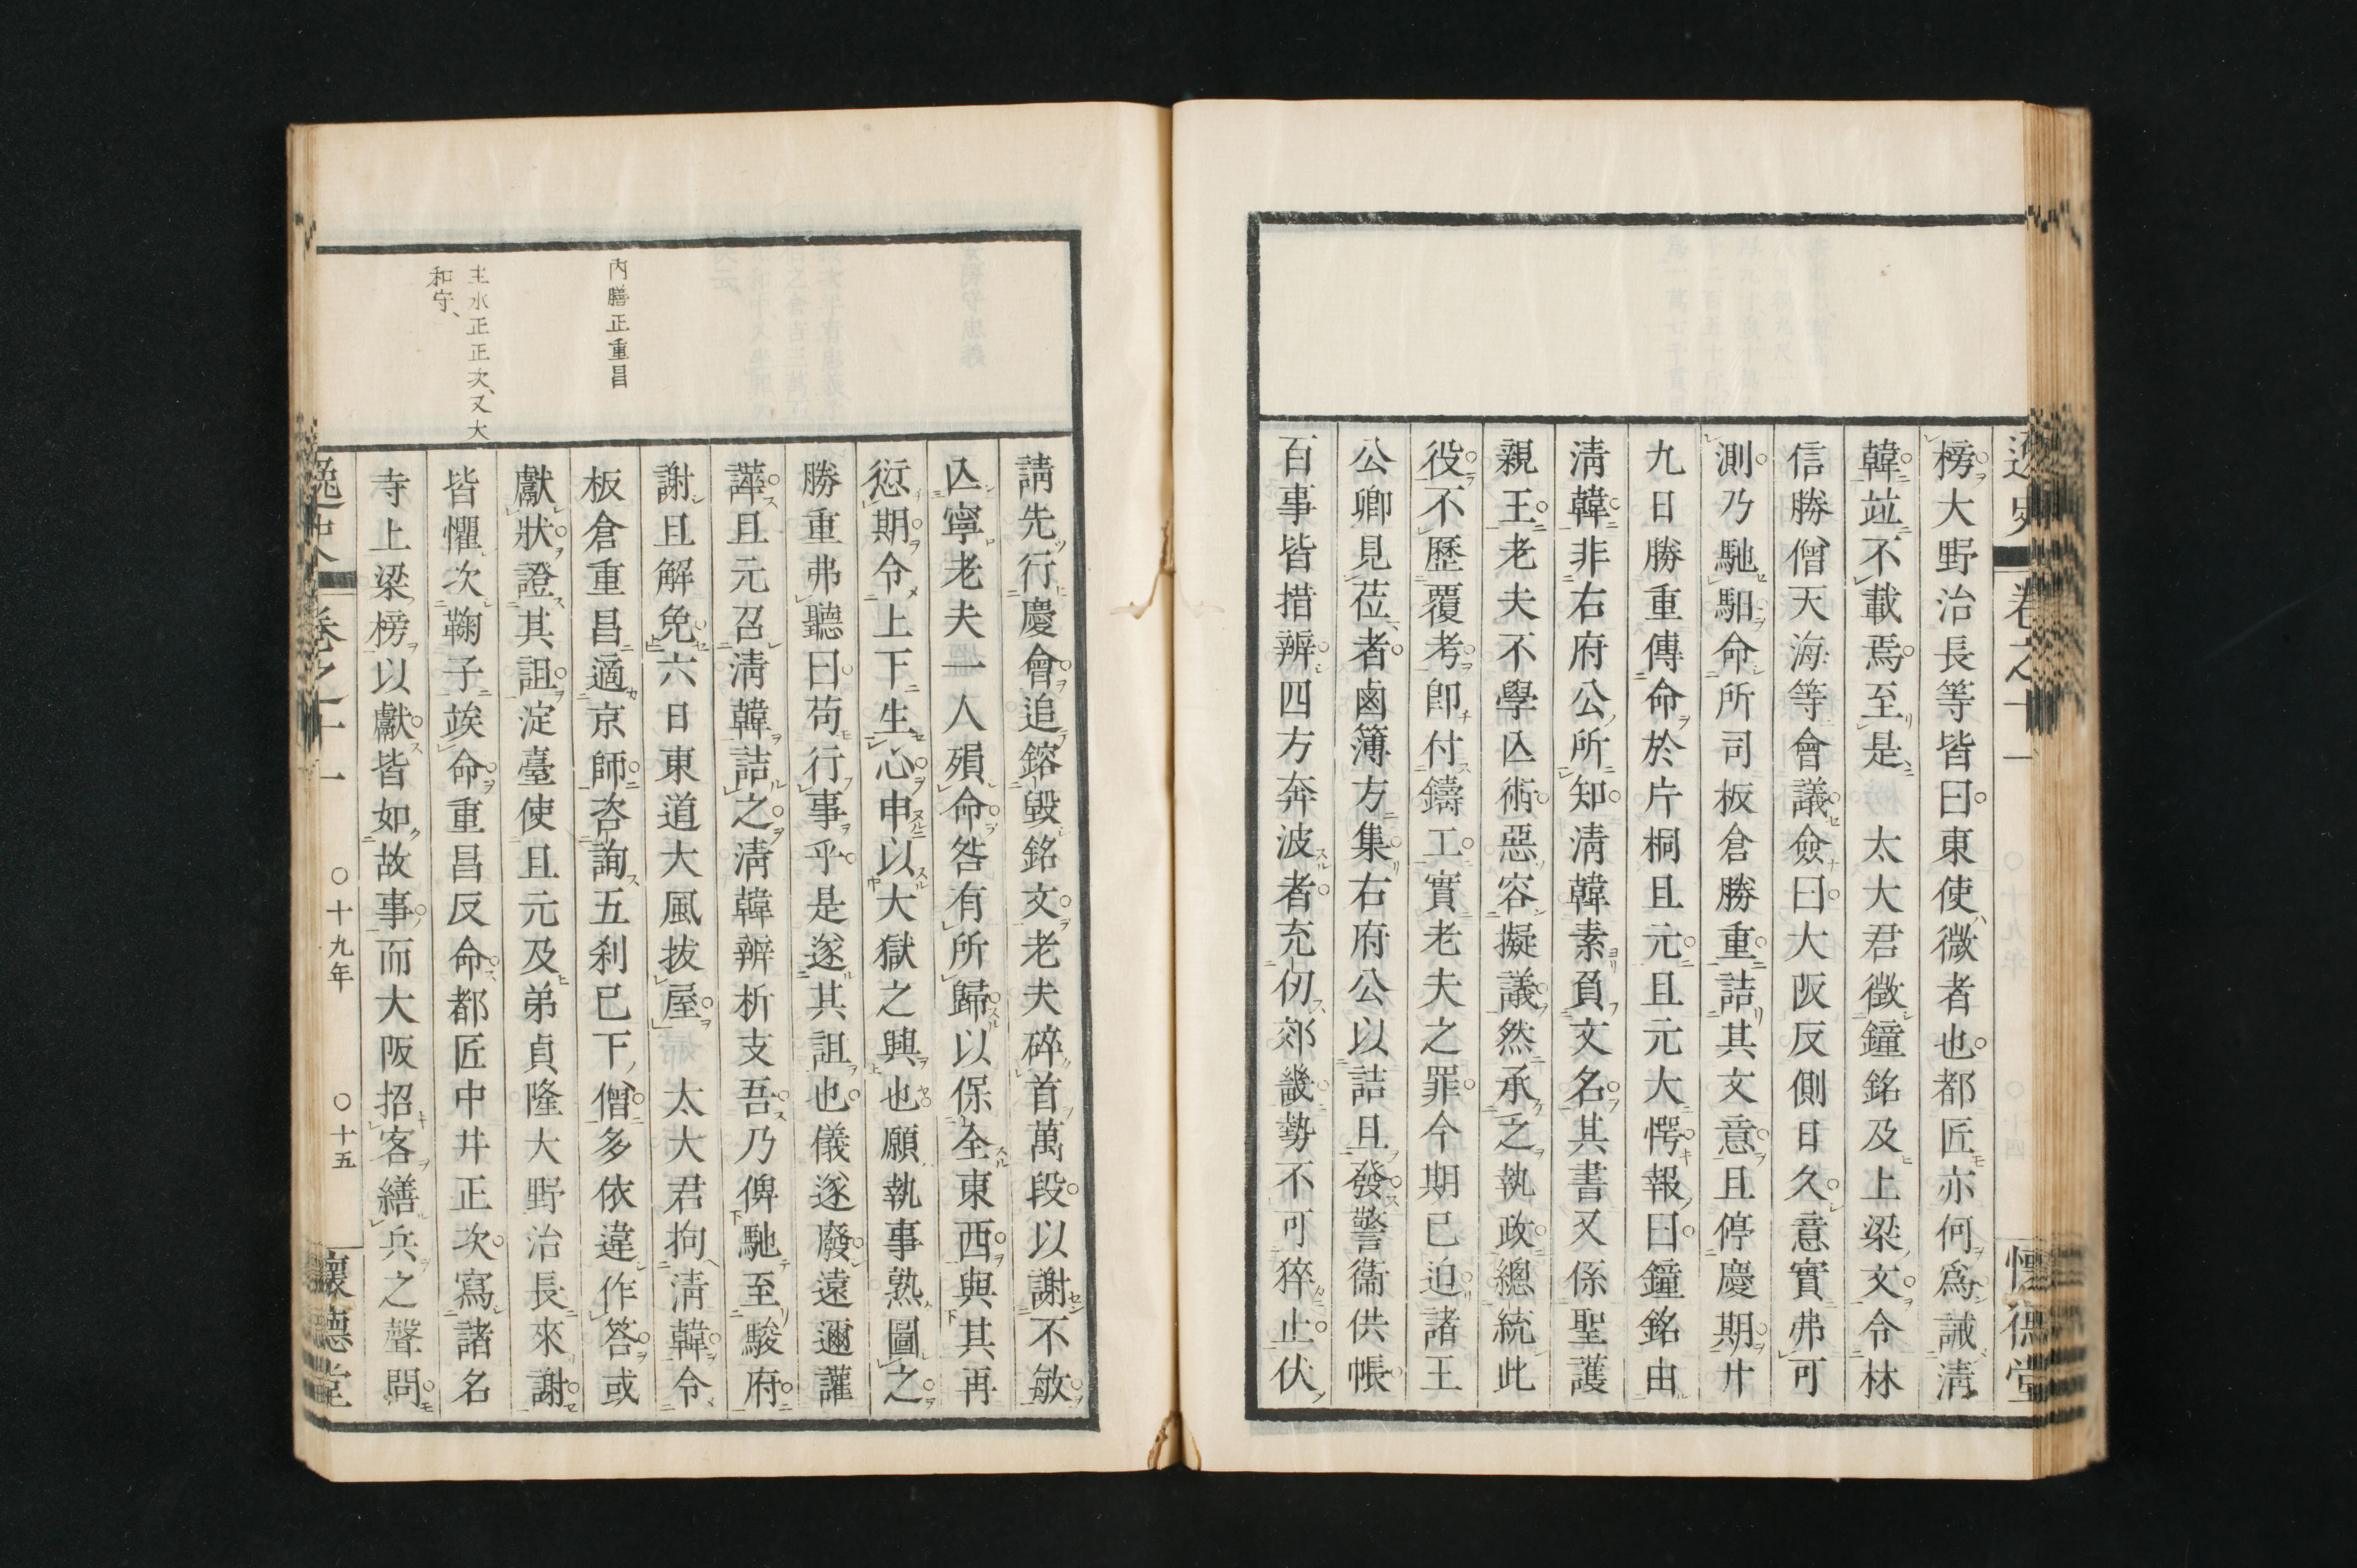 逸史
卷之十一
懷德堂
榜大野治長等皆曰東使徵者也都匠亦何爲誡淸
韓竝不載焉至是太大君徵鐘銘及上梁文令林
信勝僧天海等會議僉曰大阪反側日久意實弗可
測乃馳馹命所司板倉勝重詰其文意且停慶期廿
九日勝重傳命於片桐且元且元大愕報曰鐘銘由
淸韓非右府公所知淸韓素負文名其書又係聖護
親王老夫不學亾術惡容擬議然承乏執政總統此
役不歷覆考卽付鑄工實老夫之罪今期已迫諸王
公卿見莅者鹵簿方集右府公以詰旦發警衞供帳
百事皆措辨四方奔波者充仞郊畿勢不可猝止伏
請先行慶會追鎔毀銘文老夫碎首萬段以謝不敏
亾寧老夫一人殞命咎有所歸以保全東西與其再
愆期令上下生心申以大獄之興也願執事熟圖之
勝重弗聽曰苟行事乎是遂其詛也儀遂廢遠邇讙
譁且元召淸韓詰之淸韓辨析支吾乃俾馳至駿府
謝且解免六日東道大風拔屋太大君拘淸韓令
板倉重昌適京師咨詢五刹已下僧多依違作答或
獻狀證其詛淀臺使且元及弟貞隆大野治長來謝
皆懼次鞠子竢命重昌反命都匠中井正次寫諸名
寺上梁榜以獻皆如故事而大阪招客繕兵之聲問
內膳正重昌
主水正正次、又大
和守、
逸史
卷之十一
○十九年
○十五
懷德堂